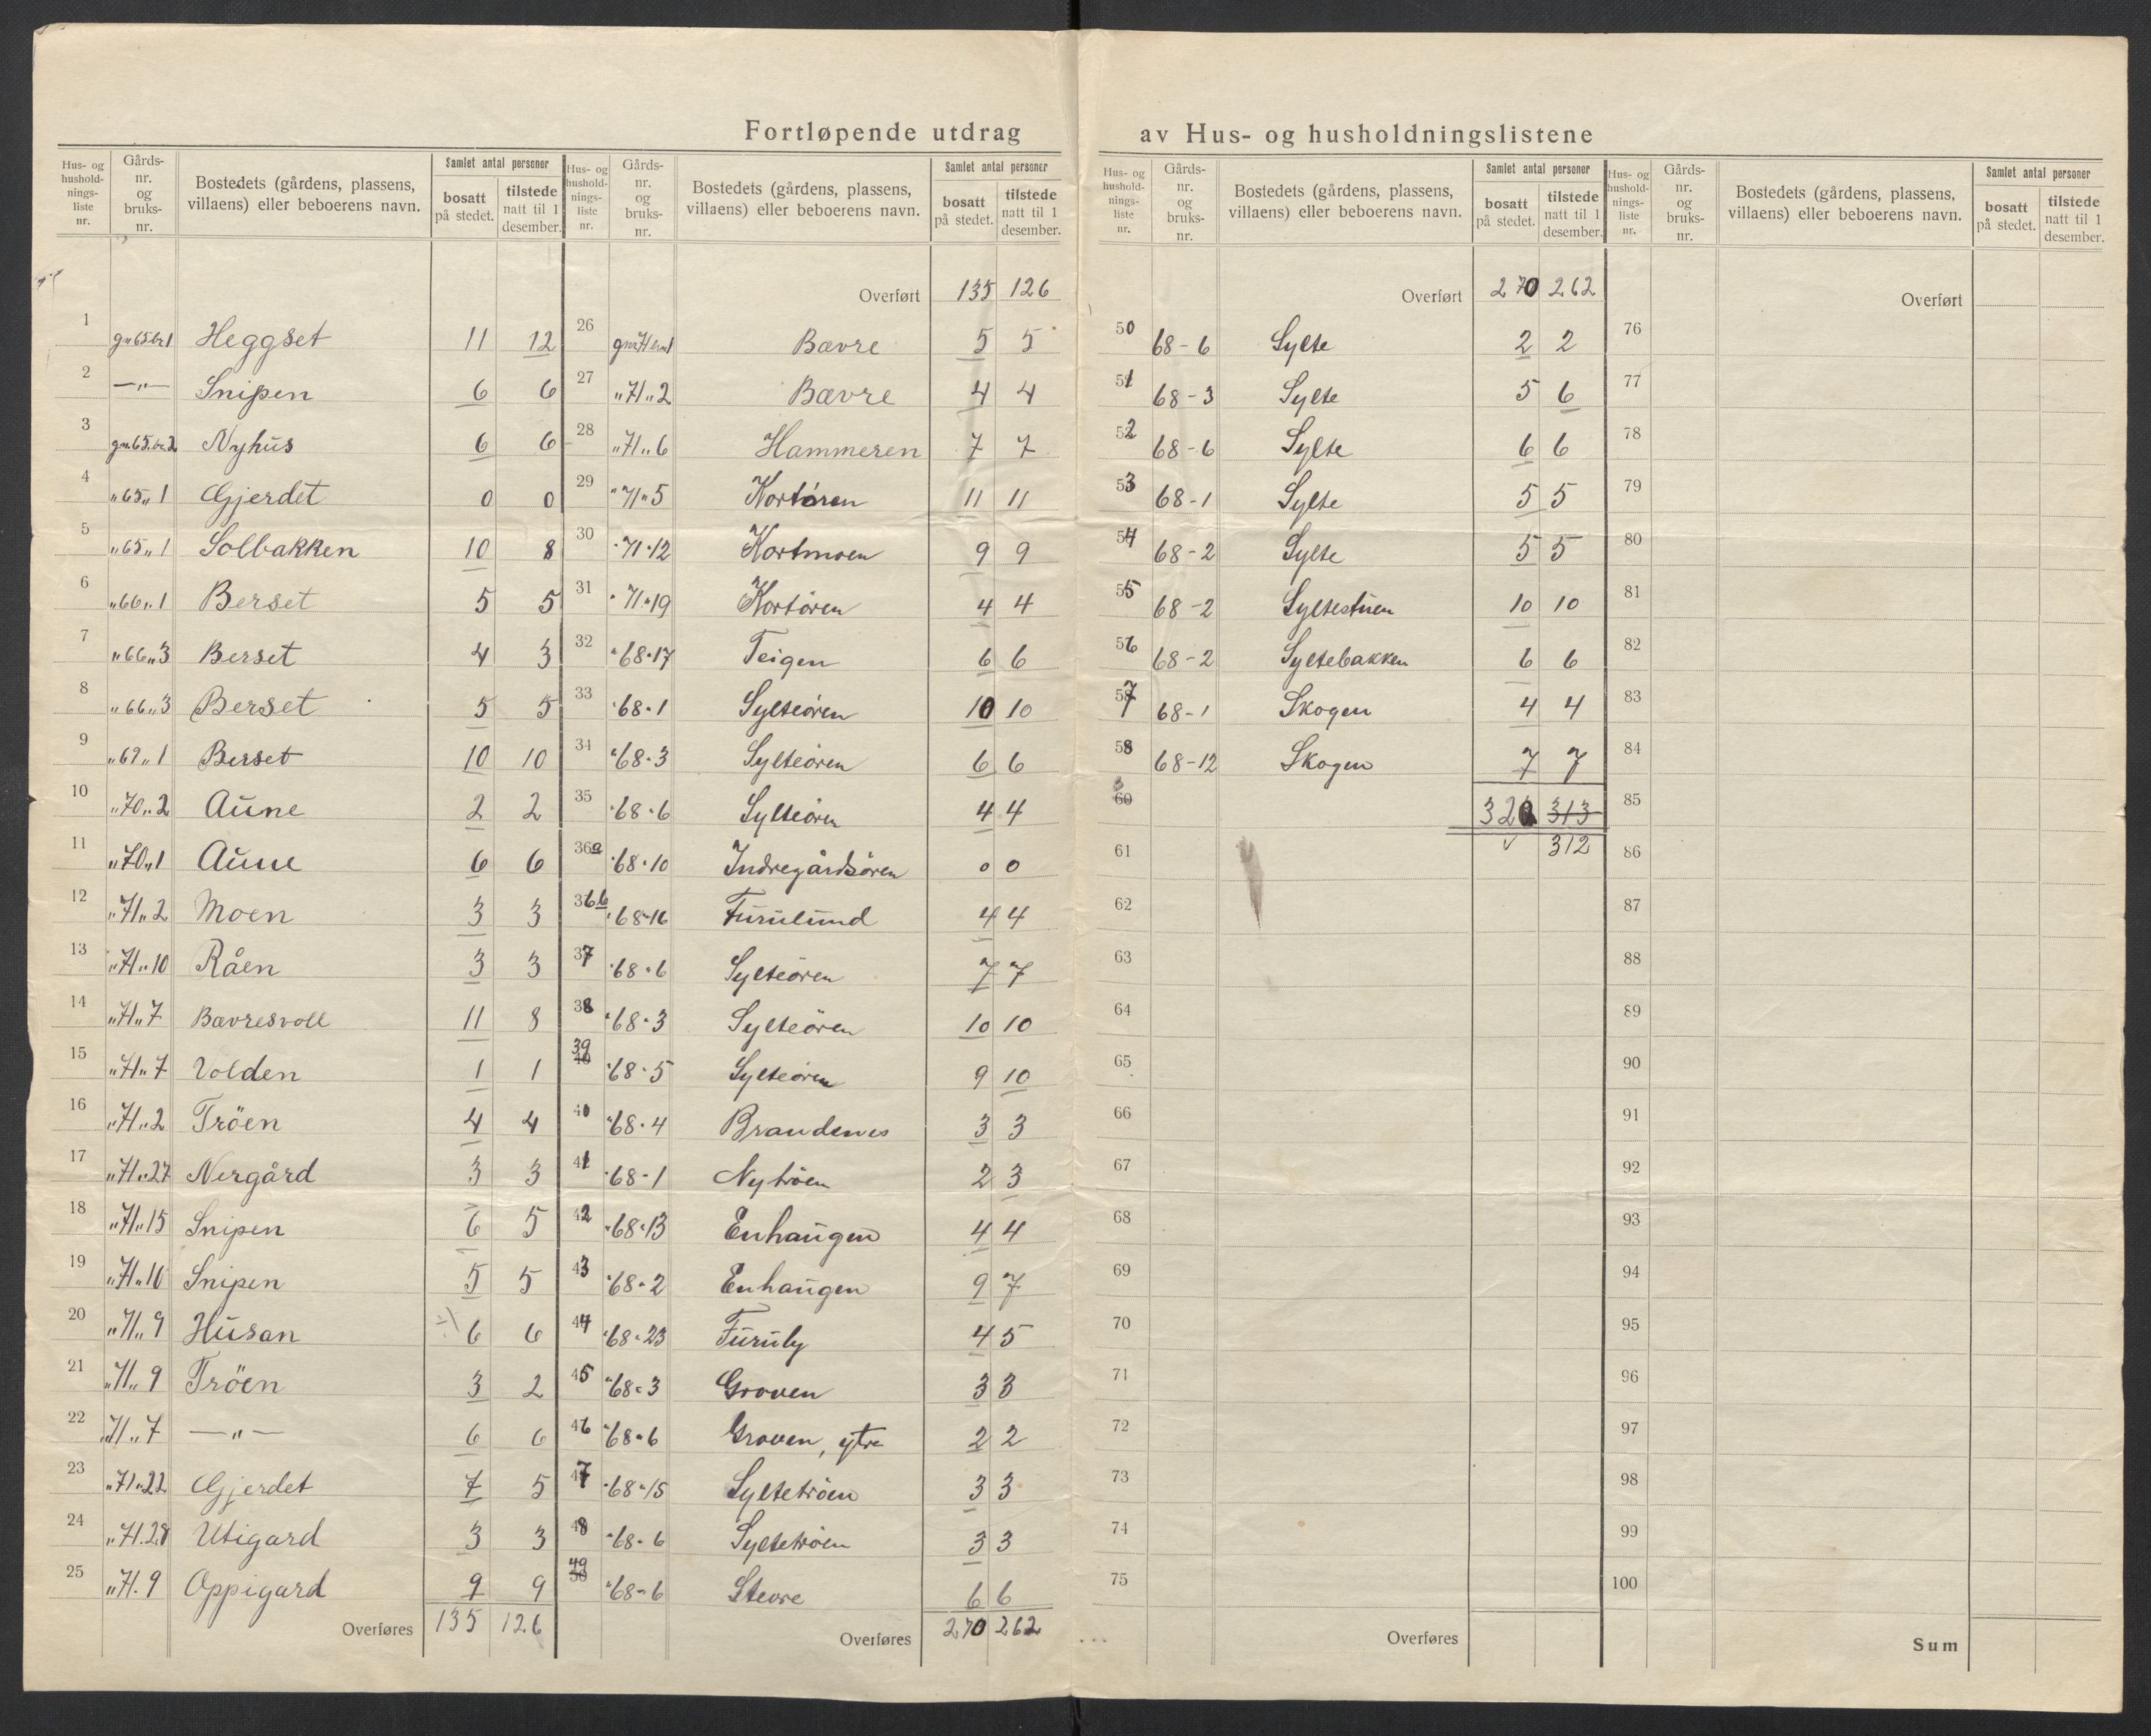 Fortløpende utdrag av Hus- og husholdningslistene
Hus- og husholdnings-liste nr. | Gårds-nr. og bruks-nr. | Bostedets (gårdens, plassens, villaens) eller beboerens navn. | Samlet antal personer | bosatt på stedet. | tilstede natt til 1 desember.
1 gnr 65 br 1 Heggset 11 12
2 —"— Snipen 6 6
3 gnr. 65. br. 2 Nyhus 6 6
4 " 65 " 1 Gjerdet 0 0
5 " 65 " 1 Solbakken 10 8
6 " 66 " 1 Berset 5 5
7 " 66 " 3 Berset 4 3
8 " 66 " 3 Berset 5 5
9 " 67 " 1 Berset 10 10
10 " 70 " 2 Aune 2 2
11 " 70 " 1 Aune 6 6
12 " 71 " 2 Moen 3 3
13 " 71 " 10 Råen 3 3
14 " 71 " 7 Bævresvoll 11 8
15 " 71 " 7 Volden 1 1
16 " 71 " 2 Tröen 4 4
17 " 71 " 27 Nergård 3 3
18 " 71 " 15 Snipen 6 5
19 " 71 " 16 Snipen 5 5
20 " 71 " 9 Husan 6 6
21 " 71 " 9 Tröen 3 2
22 " 71 " 7 —"— 6 6
23 " 71 " 22 Gjerdet 7 5
24 " 71. 28 Utigard 3 3
25 " 71. 9 Oppigard 9 9
Overføres 135 126
Hus- og husholdnings-liste nr. | Gårds-nr. og bruks-nr. | Bostedets (gårdens, plassens, villaens) eller beboerens navn. | Samlet antal personer | bosatt på stedet. | tilstede natt til 1 desember.
Overført 135 126
26 gnr 71 brn 1 Bævre 5 5
27 " 71 " 2 Bævre 4 4
28 " 71 " 6 Hammeren 7 7
29 " 71 " 5 Kortören 11 11
30 " 71 " 12 Kortmoen 9 9
31 " 71 " 19 Kortören 4 4
32 " 68 " 17 Teigen 6 6
33 " 68 " 1 Sylteören 10 10
34 " 68 " 3 Sylteören 6 6
35 " 68 " 6 Sylteören 4 4
36a " 68 " 10 Indregårdsören 0 0
36b " 68 " 16 Furulund 4 4
37 " 68 " 6 Sylteören 7 7
38 " 68 " 3 Sylteören 10 10
39 " 68 " 5 Sylteören 9 10
40 " 68 " 4 Brandenes 3 3
41 " 68 - 1 Nytröen 2 3
42 " 68 " 13 Enhaugen 4 4
43 " 68 " 2 Enhaugen 9 7
44 " 68 " 23 Furuly 4 5
45 " 68 " 3 Groven 3 3
46 " 68 " 6 Groven, ytre 2 2
47 " 68 " 15 Syltetröen 3 3
48 " 68 - 6 Syltetröen 3 3
49 " 68 - 6 Stevre 6 6
Overføres 270 262
Hus- og husholdnings-liste nr. | Gårds-nr. og bruks-nr. | Bostedets (gårdens, plassens, villaens) eller beboerens navn. | Samlet antal personer | bosatt på stedet. | tilstede natt til 1 desember.
Overført 270 262
50 68 - 6 Sylte 2 2
51 68 - 3 Sylte 5 6
52 68 - 6 Sylte 6 6
53 68 - 1 Sylte 5 5
54 68 - 2 Sylte 5 5
55 68 - 2 Syltestuen 10 10
56 68 - 2 Syltebakken 6 6
57 68 - 1 Skogen 4 4
58 68 - 12 Skogen 7 7
60 320 313
61 312
62
63
64
65
66
67
68
69
70
71
72
73
74
75
Overføres
Hus- og husholdnings-liste nr. | Gårds-nr. og bruks-nr. | Bostedets (gårdens, plassens, villaens) eller beboerens navn. | Samlet antal personer | bosatt på stedet. | tilstede natt til 1 desember.
Overført
76
77
78
79
80
81
82
83
84
85
86
87
88
89
90
91
92
93
94
95
96
97
98
99
100
Sum